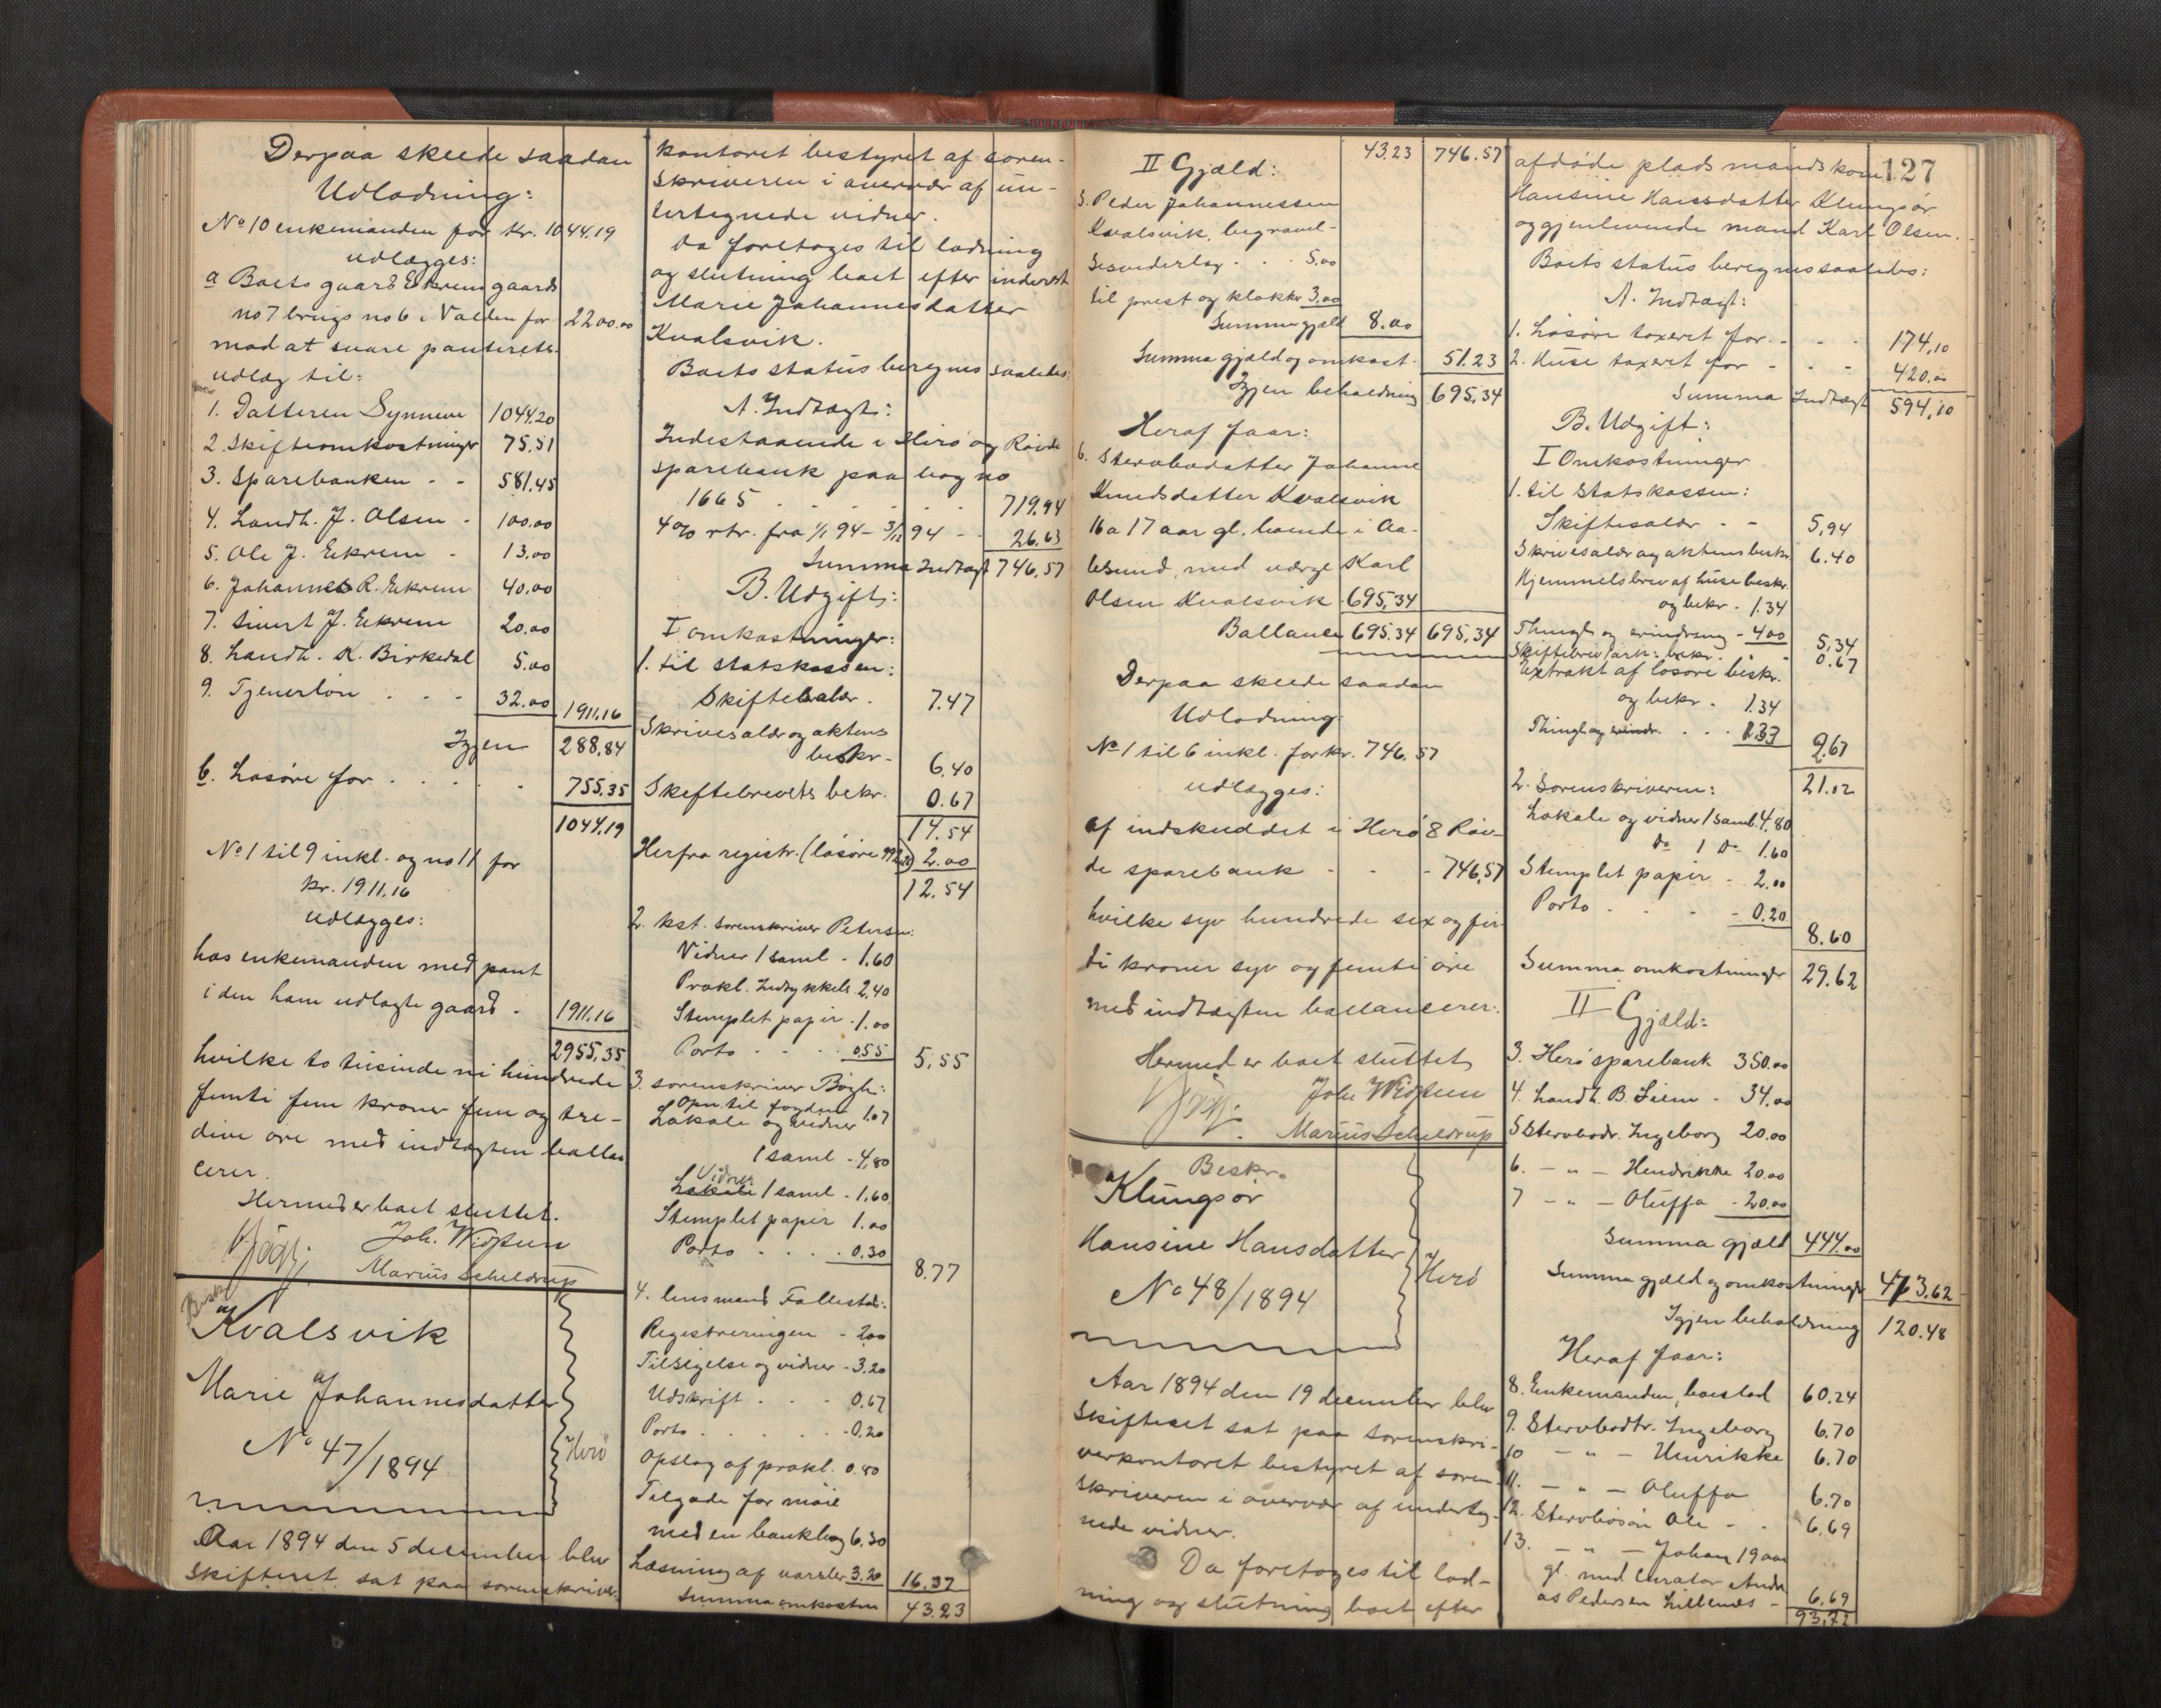 Derpaa skeede saadan
Udlodning:
No 10 enkemanden for kr. 1044.19
udlægges:
a Boets gaard Ekrem gaards
no 7 brugs no 6 i Valden for 2200.00
mod at svare panterets
udlæg til:
1. Datteren Synneve 1044.20
2. Skifteomkostninger 75.51
3. Sparebanken - - 581.45
4. Landh. J. Olsen - 100.00
5. Ole J. Ekrem - 13.00
6. Johannes R. Ekrem 40.00
7. Sivert J. Ekrem 20.00
8. Landh. K. Birkedal 5.00
9. Tjenerløn . . - 32.00 1911.16
Igjen 288.84
b. Løsøre for . . . . 755.35
1044.19
No 1 til 9 inkl. og no 11 for
kr. 1911.16
udlægges:
hos enkemanden med pant
i den ham udlagte gaard - 1911.16
2955.35
hvilke to tusinde ni hundrede
femti fem kroner fem og tre-
dive øre med indtægten ballan
cerer.
Hermed er boet sluttet.
Bøgh. Joh. Widsteen
Marius Scheldrup
Beskr.
Kvalsvik
Marie Johannesdatter
No 47/1894
Herö
Aar 1894 den 5 december blev
skifteret sat paa sorenskriver-
kontoret bestyret af soren-
skriveren i overvær af un-
dertegnede vidner.
Da foretoges til lodning
og slutning boet efter inderst
Marie Johannesdatter
Kvalsvik.
Boets status beregnes saaledes:
A. Indtægt:
Indestaaende i Herö og Røvde
sparebank paa bog no
1665 . . . . . . 719.94
4% rtr. fra 1/1 94 - 3/12 94 - - 26.63
Summa Indtægt 746.57
B. Udgift:
I omkostninger:
1. til statskassen:
Skiftesalær . 7.47
Skrivesalær og aktens
beskr - 6.40
Skiftebrevets bekr. 0.67
14.54
Herfra registr. (løsøre 2.00
12.54
2. kst. sorenskriver Petersen:
Vidner 1 saml - 1.60
Prokl. Indrykkels 2.40
Stemplet papir . 1.00
Porto . . . . 0.55 5.55
3. sorenskriver Bøgh:
Opn. til fogden 1.07
Lokale og vidner
1 saml - 4.80
Vidner
Lokale 1 saml - 1.60
Stemplet papir 1.00
Porto . . . . 0.30
8.77
4. lensmand Fallestad:
Registreringen - 2.00
Tilsigelse og vidner - 3.20
Udskrift . . - 0.67
Porto . . . . . - 0.20
Opslag af prokl. 0.80
Tilgode for møie
med en bankbog 6.30
Læsning af varsler 3.20 16.37
Summa omkostn 43.23
127
43.23 746.57
II Gjæld:
5. Peder Johannessen
Kvalsvik, begravel-
sesvederlag . . . 5.00
til prest og klokker 3.00
Summa gjæld 8.00
Summa gjæld og omkost. 51.23
Igjen beholdning 695.34
Heraf faar:
6. Stervbodatter Johanne
Knudsdatter Kvalsvik
16 a 17 aar gl. boende i Aa-
lesund, med værge Karl
Olsen Kvalsvik 695.34
Ballance 695.34 695.34
Derpaa skeede saadan
Udlodning
No 1 til 6 inkl. for kr. 746.57
udlægges:
af indskuddet i Herö & Røv-
de sparebank - - - 746.57
hvilke syv hundrede sex og fir
ti kroner syv og femti øre
med indtægten ballancerer.
Hermed er boet sluttet
Bøgh. Joh. Widsteen
Marius Scheldrup
Beskr.
Klungsör
Hansine Hansdatter
Herö
No 48/1894
Aar 1894 den 19 december blev
skifteret sat paa sorenskri-
verkontoret bestyret af soren-
skriveren i overvær af underteg-
nede vidner.
Da foretoges til lod-
ning og slutning boet efter
afdøde pladsmandskone
Hansine Hansdatter Klungsör
og gjenlevende mand Karl Olsen.
Boets status beregnes saaledes:
A. Indtægt:
1. Løsøre taxeret for - - - 174.10
2. Huse taxeret for - - - 420.00
Summa Indtægt 594.10
B. Udgift:
I Omkostninger
1. til statskassen:
Skiftesalær - - 5.94
Skrivesalær og aktens beskr. 6.40
Hjemmelsbrev af huse beskr.
og bekr. - 1.34
Thingl. og erindring - 4.00 5.34
Skiftebrev bekr. . . 0.67
Extrakt af løsøre beskr.
og bekr. - 1.34
Thingl. og erindr. . . . 1.33 2.67
21.02
2. Sorenskriveren:
Lokale og vidner 1 saml. 4.80
do 1 do 1.60
Stemplet papir - 2.00
Porto . . - - 0.20
8.60
Summa omkostninger 29.62
II Gjæld:
3. Herö sparebank 350.00
4. Landh. B. Liem - 34.00
5 Stervbodr. Ingeborg 20.00
6. - " - Hendrikke 20.00
7 - " - Oluffa - 20.00
Summa gjæld 444.00
Summa gjæld og omkostninger 473.62
Igjen beholdning 120.48
Heraf faar:
8. Enkemanden, boeslod 60.24
9. Stervbodtr. Ingeborg 6.70
10 - " - Henrikke 6.70
11. - " - Oluffa 6.70
12. Stervbosøn Ole - - 6.69
13. - " - Johan 19 aar
gl. med curator Andr
as Pedersen Lillenes - 6.69
93.72